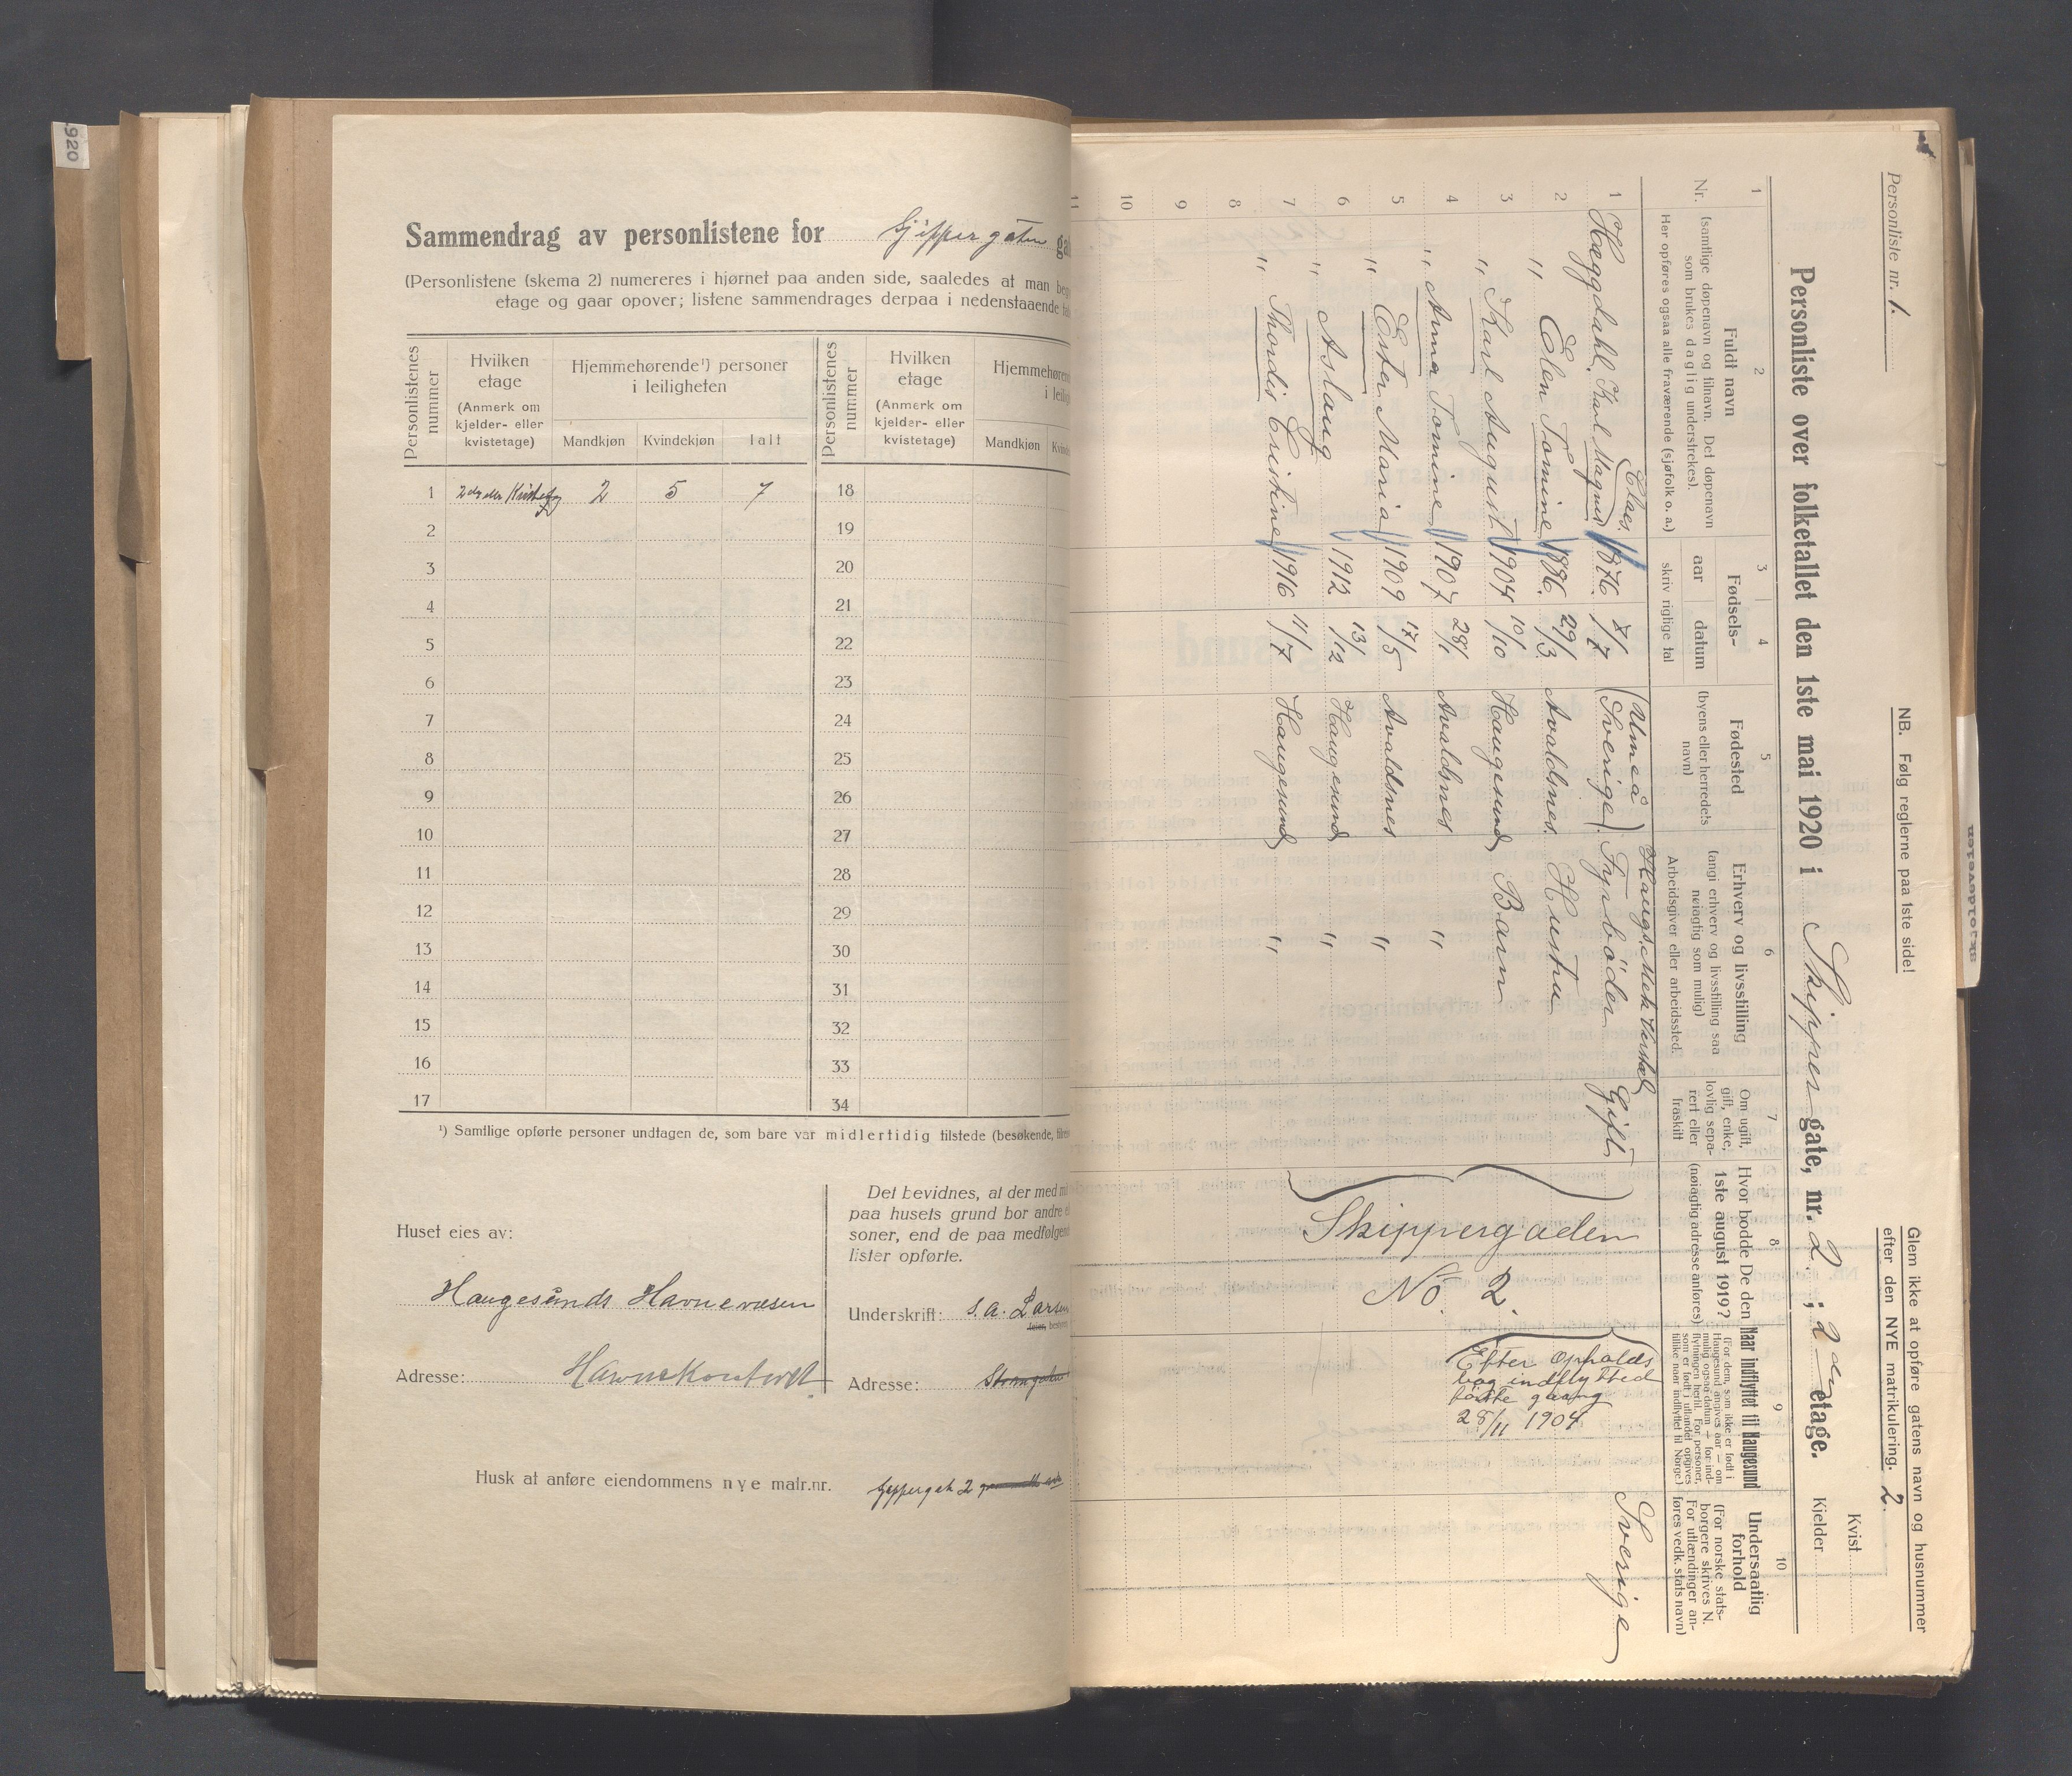 920
Sammendrag av personlistene for
(Personlistene (skema 2) numereres i hjørnet paa anden side, saaledes at man
etage og gaar opover; listene sammendrages derpaa i nedenstaaende
Personlistenes nummer
Hvilken etage
(Anmerk om kjelder- eller kvistetage)
Hjemmehørende¹) personer i leiligheten
Mandkjøn Kvindekjøn Ialt
Personlistenes nummer
Hvilken etage
(Anmerk om kjelder- eller kvistetage)
Mandkjøn
1 2 5 7 18
2 19
3 20
4 21
5 22
6 23
7 24
8 25
9 26
10 27
11 28
12 29
13 30
14 31
15 32
16 33
17 34
¹) Samtlige opførte personer undtagen de, som bare var midlertidig tilstede (besøkende,
Huset eies av:
Haugesunds Havnevæsen
Adresse: Havnekontoret
Det bevidnes, at der med
paa husets grund bor andre
soner, end de paa medfølgende
lister opførte.
Underskrift: S. A. Larsen
Adresse:
Husk at anføre eiendommens nye matr.nr.
Personliste nr. 1.
NB. Følg reglerne paa 1ste side!
Glem ikke at opføre gatens navn og husnummer
efter den NYE matrikulering. 2.
Personliste over folketallet den 1ste mai 1920 i Skipper gate, nr. 2 ; 2den etage.
Kvist
Kjelder
1 2 3 4 5 6 7 8 9 10
Nr.
Fuldt navn
(samtlige døpenavn og tilnavn. Det døpenavn
som brukes daglig understrekes).
Her opføres ogsaa alle fraværende (sjøfolk o. a.)
Fødsels-
aar datum
skriv rigtige tal
Fødested
(byens eller herredets navn)
Erhverv og livsstilling
(angi erhverv og livsstilling saa
nøiagtig som mulig)
Arbeidsgiver eller arbeidssted.
Om ugift, gift, enke, lovlig separert eller fraskilt
Hvor bodde De den
1ste august 1919?
(nøiagtig adresse anføres)
Naar indflyttet til Haugesund
(For dem, som ikke er født i
Haugesund angives aar — om
mulig ogsaa datum — for ind-
flytningen hertil. For personer,
som er født i utlandet opgives
tillike naar indflyttet til Norge)
Undersaatlig forhold
(For norske stats-
borgere skrives N.
For utlændinger an-
føres vedk. stats navn)
Haugs. Mek Verksted
1 Hæggdahl, Karl Magnus Claes 1876. 8/7 (Umeå Sverige). Fyrbôder Gift Sverige
2 " Elen Tomine 1886. 29/3. Avaldsnes. Hustru
3 " Karl August 1904 10/10 Haugesund Barn
4 " Anna Tomine 1907 28/1 Avaldsnes "
5 " Ester Maria 1909 17/5 Avaldsnes "
6 " Aslaug 1912 13/12 Haugesund "
7 " Thordis Cristine 1916 11/7 Haugesund "
8
9
10
11
Skippergaden
No. 2.
Efter Opholds
bog indflytted
første gaang
28/11 1904